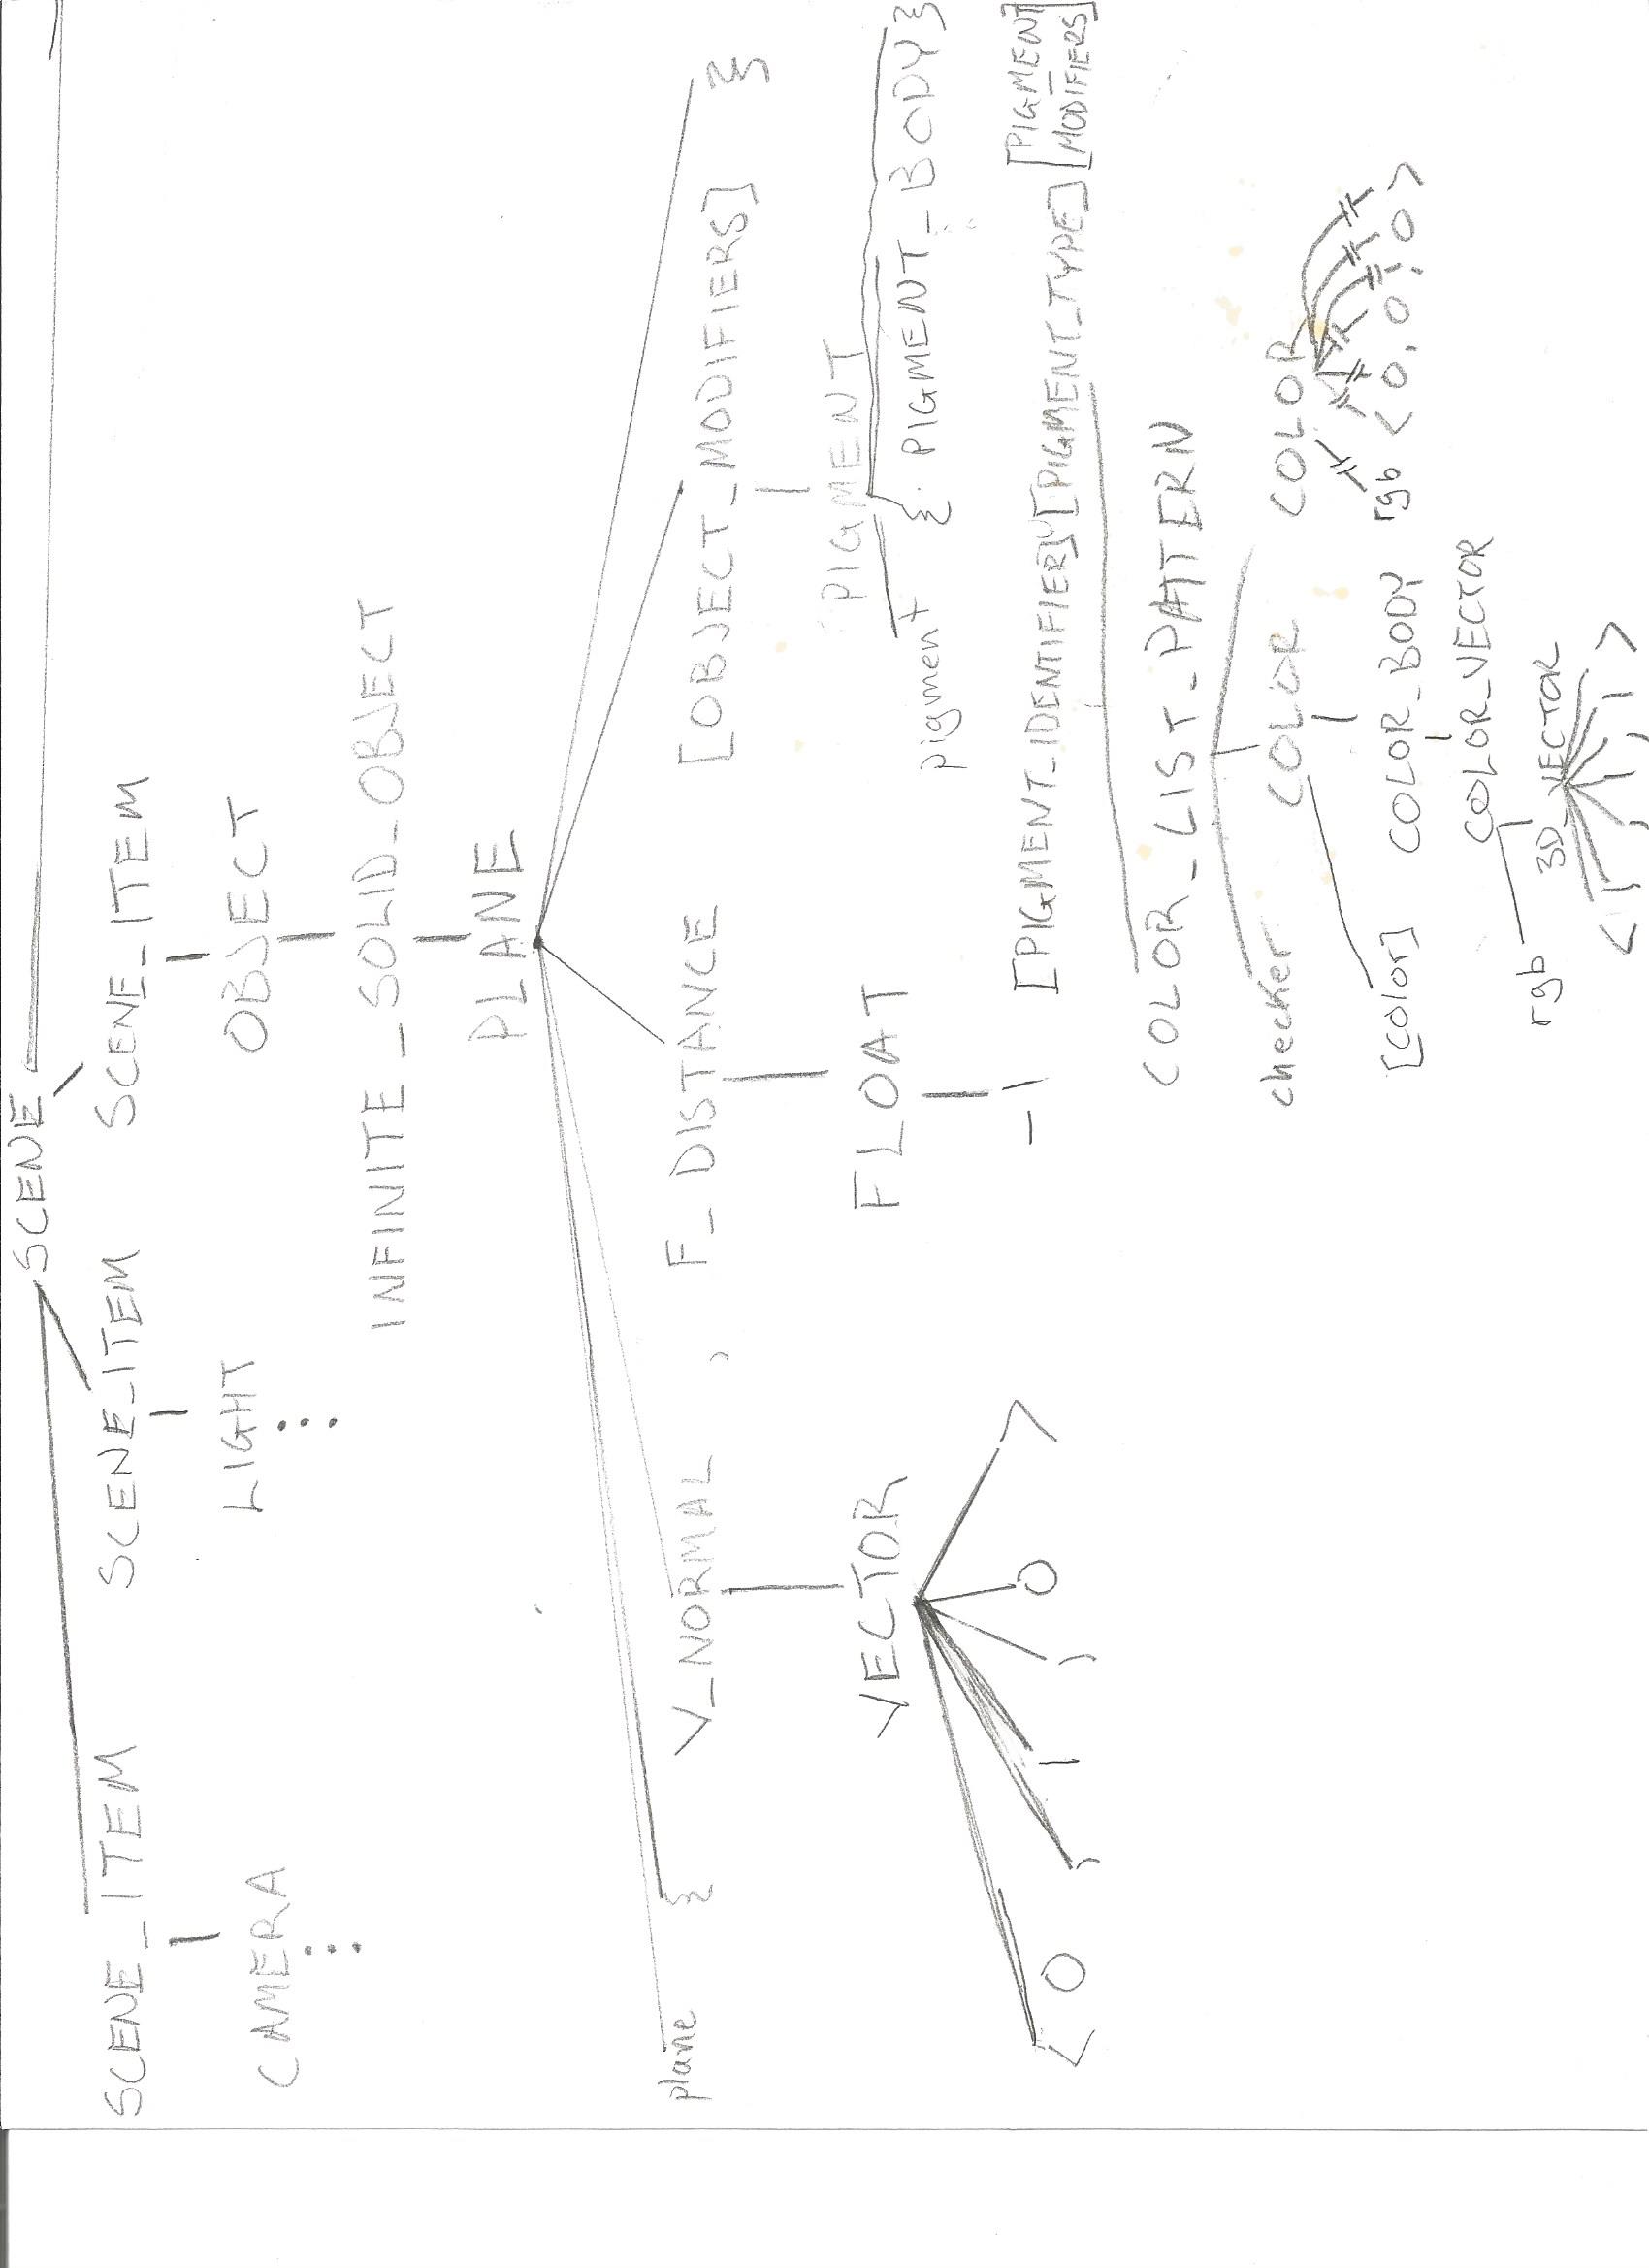 SCENE
SCENE_ITEM SCENE_ITEM SCENE_ITEM
CAMERA LIGHT OBJECT
INFINITE_SOLID_OBJECT
PLANE
plane { V_NORMAL , F_DISTANCE [OBJECT_MODIFIERS] }
VECTOR FLOAT PIGMENT
pigment { PIGMENT_BODY }
< 0 , 1 , 0 > -1 [PIGMENT_IDENTIFIER] [PIGMENT_TYPE] [PIGMENT
MODIFIERS]
COLOR_LIST_PATTERN
checker COLOR COLOR
[color] COLOR_BODY rgb < 0, 0, 0 >
COLOR_VECTOR
rgb 3D_VECTOR
< 1 , 1 , 1 >